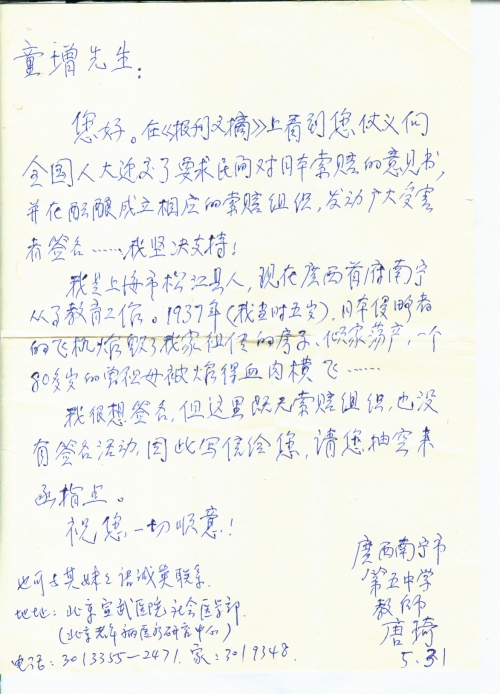 童增先生:
您好。在《报刊文摘》上看到您仗义向
全国人大递交了要求民间对日本索赔的意见书,
并在酝酿成立相应的索赔组织,发动广大受害
者签名……我坚决支持!
我是上海市松江县人,现在广西首府南宁
从事教育工作。1937年(我当时五岁),日本侵略者
的飞机炸毁了我家祖传的房子、倾家荡产,一个
80多岁的曾祖母被炸得血肉横飞……
我很想签名,但这里既无索赔组织,也没
有签名活动,因此写信给您,请您抽空来
函指点。
祝您一切顺意!
广西南宁市
第五中学
教师
唐琦
5.31
也可与其妹之诺诚英联系.
地址:北京宣武医院社会医学部.
(北京老年病医疗研究中心)
电话:3013355-2471.家:3019348.